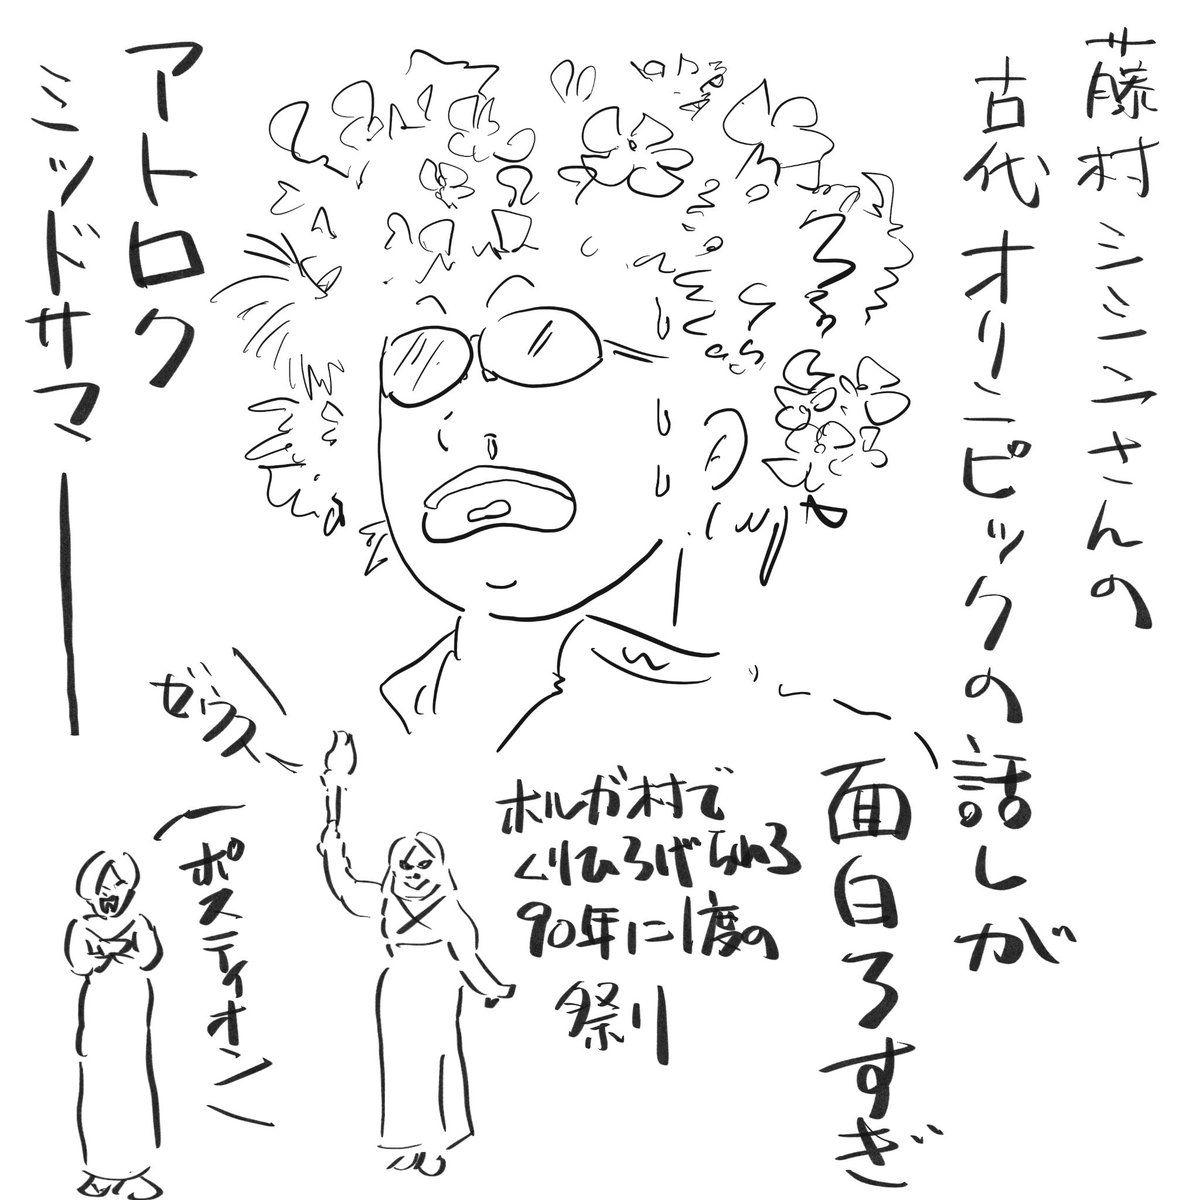 藤村シシンさんの
古代オリンピックの話しが
面白ろすぎ
アトロク
ミッドサマー
ホルガ村で
くりひろげられる
90年に1度の
祭り
ゼウスー
(ポスティオン)